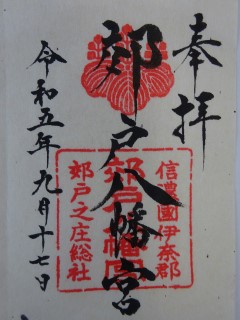 奉拝
郊戸八幡宮
信濃國伊奈郡
郊戸八幡宮
郊戸之庄総社
令和五年九月十七日